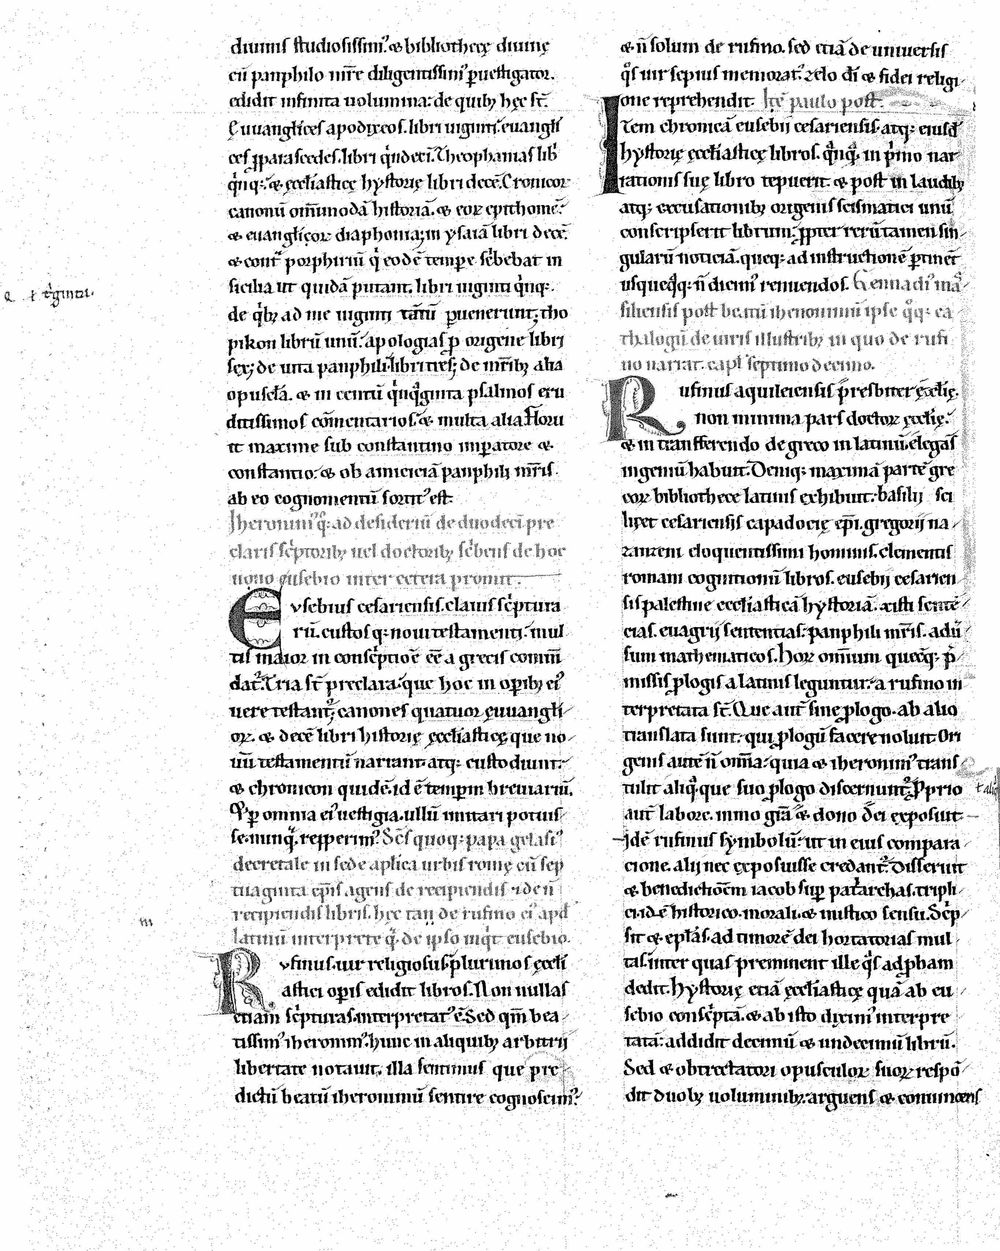 diuinis studiosissim᷒. & bibliothecę diuinę
cū panphilo mr̄e diligentissim᷒ p̱uestigator.
edidit infinita uolumina: de quib; hęc st̄.
Euuanglīcęs apodixeos. libri uiginti. euangli
cęs p̱paraseodes. libri q̇ndeci. Theophanias lib̄
q̇nq;. & ęccl̄iasticę hystorię libri decē. Cronicor
canonū omīmodā historiā. & eoꝝ epithomē.
& euanglīcoꝝ diaphonia; in ysaiā libri decē.
& cont̄ porphiriū q̇ eodē temp̱e sc̄bebat in
sicilia ut quidā putant. libri uiginti q̇nq;.
de q̇b; ad me uiginti tantū p̱uenerunt; tho
pikon librū unū. apologias p̱ origene libri
sex; de uita panphili libri tres; de mr̄ib; alia
opuscl̄a. & in centū q̇nq̇ginta psalmos eru
ditissimos com̄entarios. & multa alia. Floru
it maxime sub constantino imp̱atore &
constantio. & ob amiciciā panphili mr̄is.
ab eo cognomentū sortit᷒ est.
Iheronim᷒ q̊; ad desideriū de duodeci pre
claris sc̄ptorib; uel doctorib; sc̄bens de hoc
nono eusebio inter cetera promit.
Evsebius cesariensis. clauis sc̄ptura
rū. custos q; noui testamenti. mul
tis maior in consc̄ptiōe eē a grecis com̄
dat᷒. Tria st̄ preclara. que hoc in op̱ib; ei᷒
uere testant᷒; canones quatuor ęuuangli
oꝝ. & decē libri historię ęccl̄iasticę que no
uū testamentū narrant. atq; custodiunt.
& chronicon quidē. id ē temp̱m breuiariū.
Et p̱ omnia ei᷒ uestigia. ullū imitari potuis
se. nunq̄. rep̱perim᷒. Sc̄s quoq; papa gelasi᷒
decretale in sede aplīca urbis romę cū sep
tuaginta ep̄is agens de recipiendis & de n̄
recipiendis libris. hęc tan de rufino ei᷒ apd̄
latinū interprete q̄. de ipso inq̇t eusebio.
Rvfinus. uir religiosus. plurimos ęccl̄i
astici op̱is edidit libros. Non nullas
etiam sc̄pturas. interpretat᷒ ē. Sed qm̄ bea
tissim᷒ iheronim᷒. hunc in aliquib; arbitrii
libertate notauit. illa sentimus que pre
dictū beatū iheronimū sentire cognoscim᷒.
& n̄ solum de rufino. sed etiā de uniuersis
q̊s uir sepius memorat᷒. zelo dī & fidei religi
one reprehendit. Itē paulo post.
Item chronicā eusebii cesariensis. atq; eiusd̄
hystorię ęccl̄iasticę libros. q̇nq̄. in ṗmo nar
rationis suę libro tepuerit. & post in laudib;
atq; excusationib; origenis scismatici unū
conscripserit librum. p̱pter rerū tamen sin
gularū noticiā. queq; ad instructionē p̱tinēt
usqueq̊q; n̄ dicim᷒ renuendos. Gennadi᷒ ma
siliensis post beatū iheronimū ipse q̊q; ca
thalogū de uiris illustrib; in quo de rufi
no narrat. capl̄ septimo decimo.
Rufinus aquileiensis presbiter ęccl̄ię.
non minima pars doctoꝝ ęccl̄ię.
& in transferendo de greco in latinū. elegās
ingeniū habuit. Deniq; maximā partē gre
coꝝ bibliothecę latinis exhibuit. basilii sci
licet cesariensis capadocię ep̄i. gregorii na
zanzeni eloquentissimi hominis. clementis
romani cognitionū libros. eusebii cesarien
sis palestine ecclesiasticā hystoriā. xisti sentē
cias. euagrii sententias. panphili mr̄is. adū
sum mathematicos. Hoꝝ omnium queq; p̄
missis plogis a latinis leguntur. a rufino in
terpretata st̄. Que aut̄ sine plogo. ab alio
translata sunt. qui plogū facere noluit. Ori
genis autē n̄ om̄a. quia & iheronim᷒ trans
tulit aliq̊. que suo plogo discernunt᷒. Pprio
aut̄ labore. immo grā & dono dei exposuit
idē rufinus symbolū. ut in eius compara
cione. alii nec exposuisse credant᷒. Disseruit
& benedictiōem iacob sup̱ pat̄archas. tripli
ci. id ē historico. morali. & mistico sensu. Sc̄p
sit & eplās. ad timorē dei hortatorias mul
tas. inter quas preminent ille q̊s ad p̱bam
dedit. hystorię etiā ęccl̄iasticę quā ab eu
sebio consc̄ptā. & ab isto dixim᷒ interpre
tatā. addidit decimū & undecimū librū.
Sed & obtrectatori opusculoꝝ suoꝝ respō
dit duob; uoluminib;. arguens & conuincens